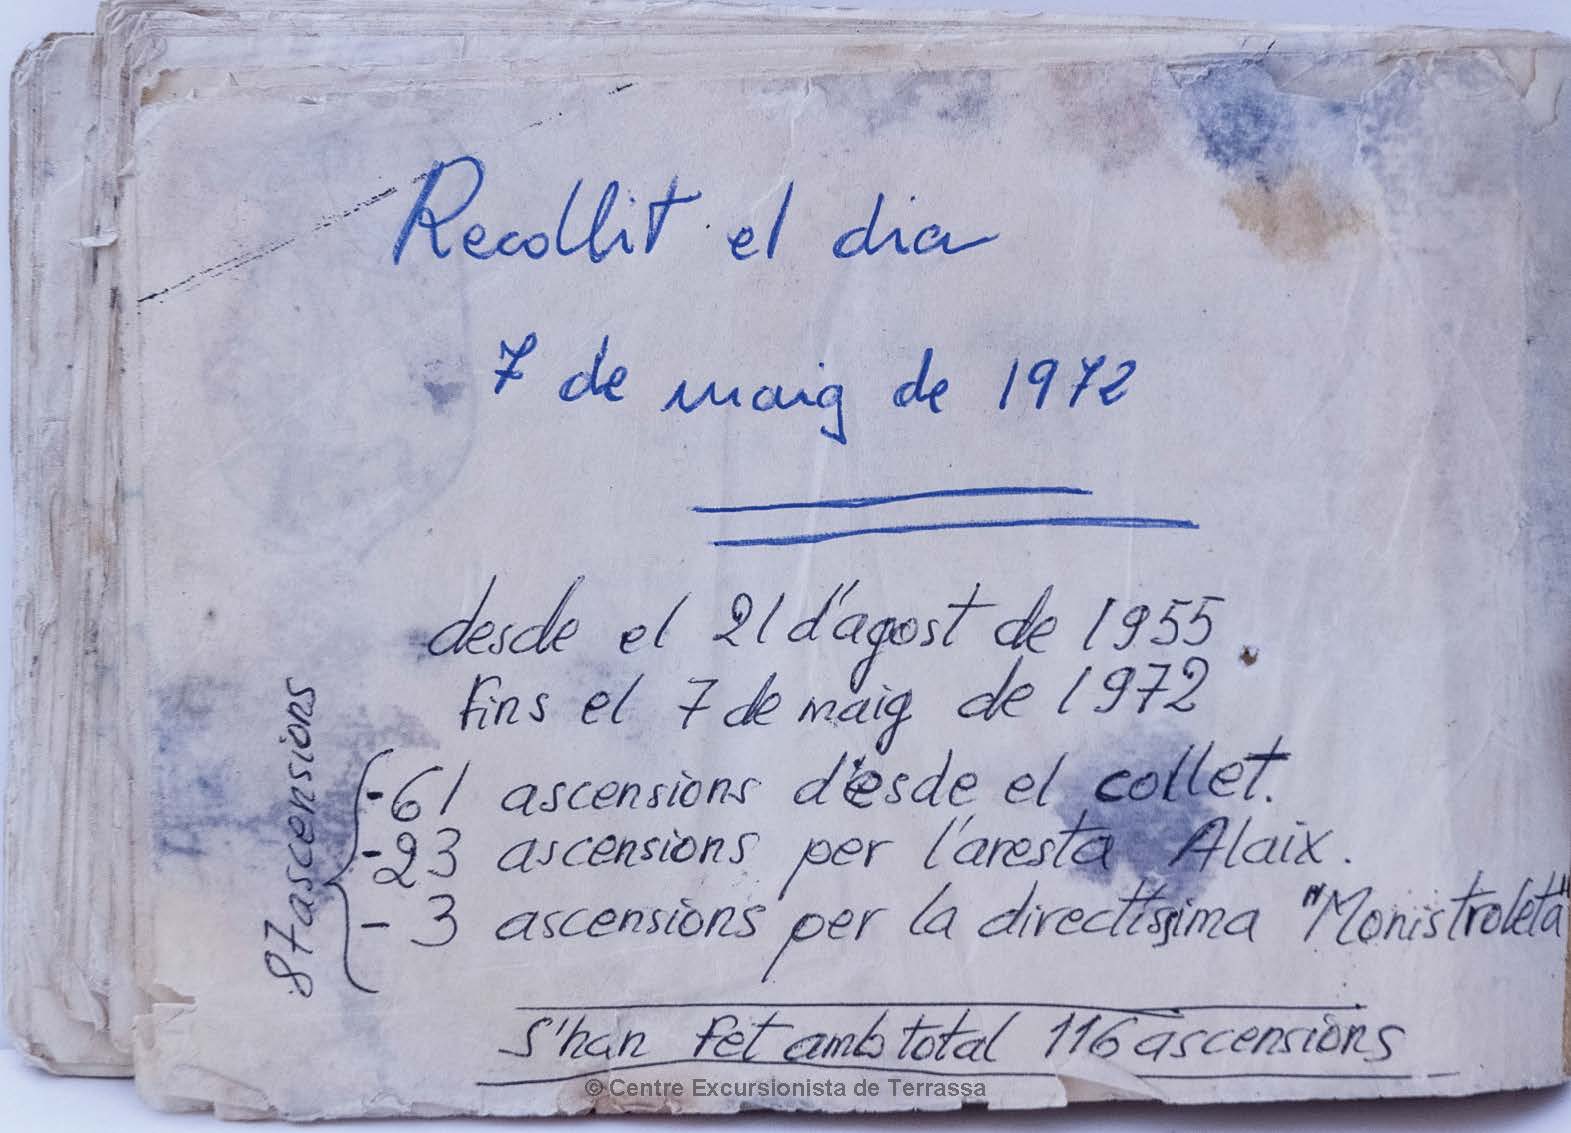 Recollit el dia
7 de maig de 1972
desde el 21 d'agost de 1955.
fins el 7 de maig de 1972
87 ascensions
-61 ascensions desde el collet.
-23 ascensions per l'aresta Alaix.
- 3 ascensions per la directíssima "Monistroleta"
S'han fet amb total 116 ascensions
© Centre Excursionista de Terrassa